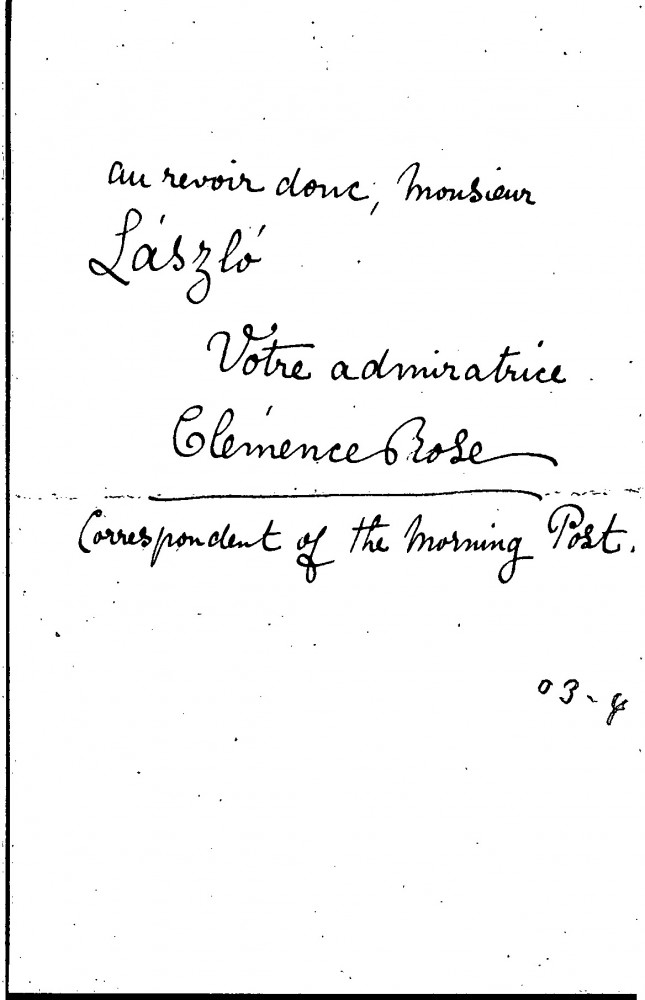 au revoir donc, Monsieur
László
Votre admiratrice
Clémence Rose
Correspondent of the Morning Post.
03-